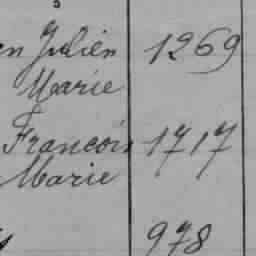 en Julien 1269
Marie
Francois 1717
Marie
978